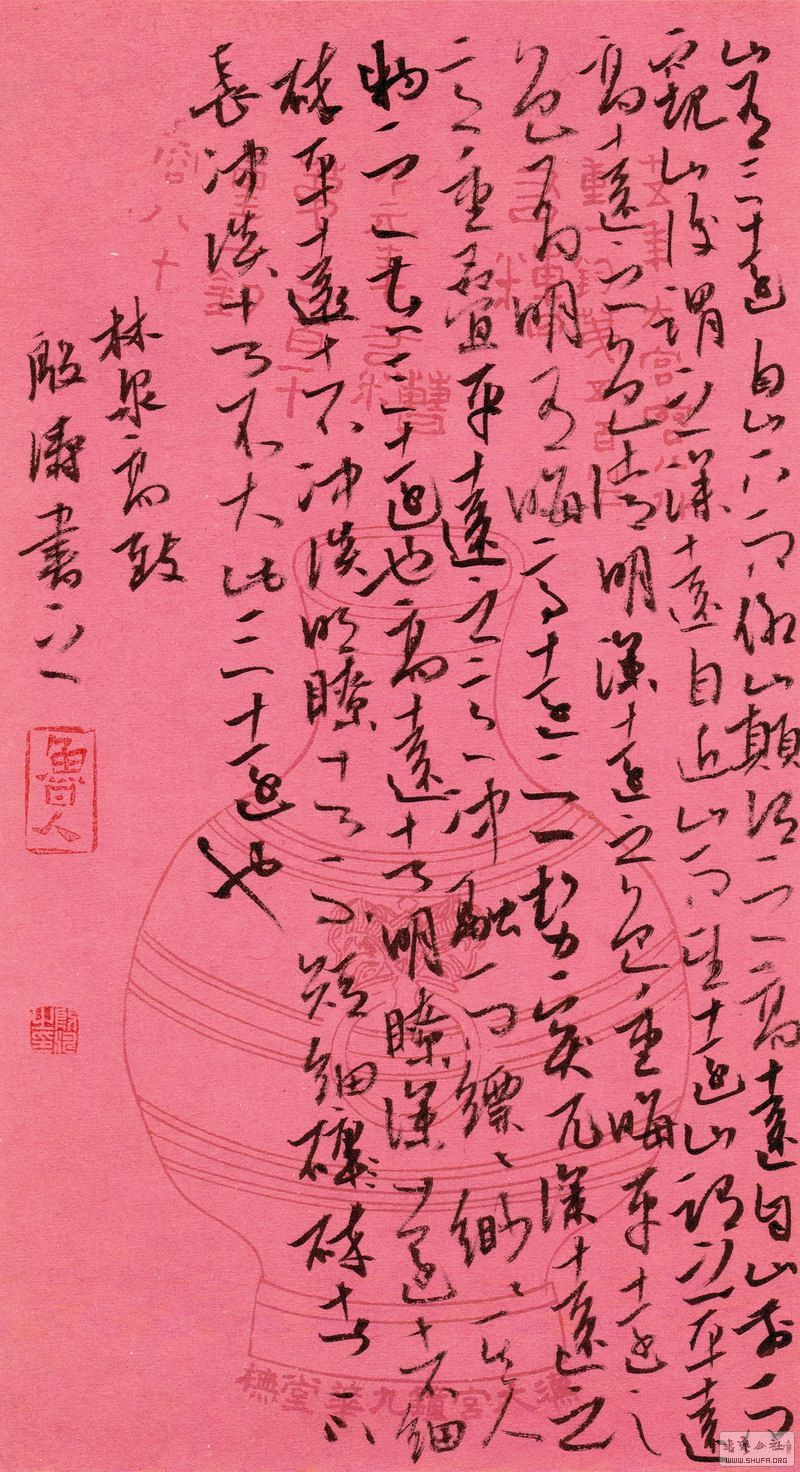 山有三遠自山下而仰山顛謂之高遠自山前而
窺山後謂之深遠自近山而望遠山謂之平遠
高遠之色清明深遠之色重晦平遠之
色有明有晦高遠之勢突兀深遠之
意重疊平遠之意冲融而縹〻緲〻其人
物之在三遠也高遠者明瞭深遠者細
碎平遠者不冲淡明瞭者不短細碎者不
長冲淡者不大此三遠也
林泉高致
殷濤書之
魯人
九華堂橅
WWW.SHUFA.ORG